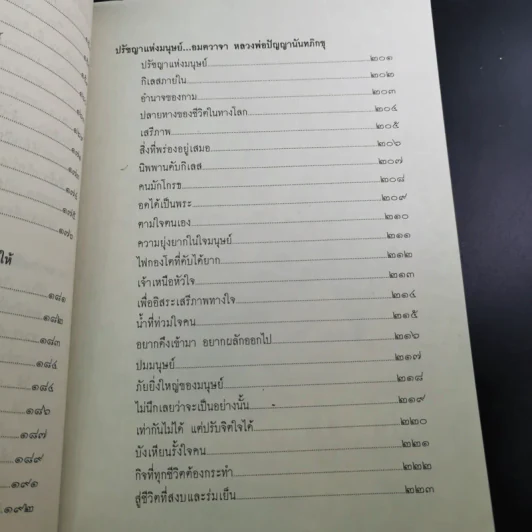 ๑๘๑
๑๘๒
๑๘๓
๑๘๔
๑๘๕
๑๘๖
๑๘๗
๑๘๙
๑๙๑
๑๙๒
ปรัชญาแห่งมนุษย์...อมควาจา หลวงพ่อปัญญานันทภิกขุ
ปรัชญาแห่งมนุษย์ ๒๐๑
กิเลสภายใน ๒๐๒
อำนาจของกาม ๒๐๓
ปลายทางของชีวิตในทางโลก ๒๐๔
เสรีภาพ ๒๐๕
สิ่งที่พร่องอยู่เสมอ ๒๐๖
นิพพานดับกิเลส ๒๐๗
คนมักโกรธ ๒๐๘
อดได้เป็นพระ ๒๐๙
ตามใจตนเอง ๒๑๐
ความยุ่งยากในใจมนุษย์ ๒๑๑
ไฟกองโตที่ดับได้ยาก ๒๑๒
เจ้าเหนือหัวใจ ๒๑๓
เพื่ออิสระเสรีภาพทางใจ ๒๑๔
น้ำที่ท่วมใจคน ๒๑๕
อยากดึงเข้ามา อยากผลักออกไป ๒๑๖
ปมมนุษย์ ๒๑๗
ภัยยิ่งใหญ่ของมนุษย์ ๒๑๘
ไม่นึกเลยว่าจะเป็นอย่างนั้น ๒๑๙
เท่ากันไม่ได้ แต่ปรับจิตใจได้ ๒๒๐
บังเหียนรั้งใจคน ๒๒๑
กิจที่ทุกชีวิตต้องกระทำ ๒๒๒
สู่ชีวิตที่สงบและร่มเย็น ๒๒๓